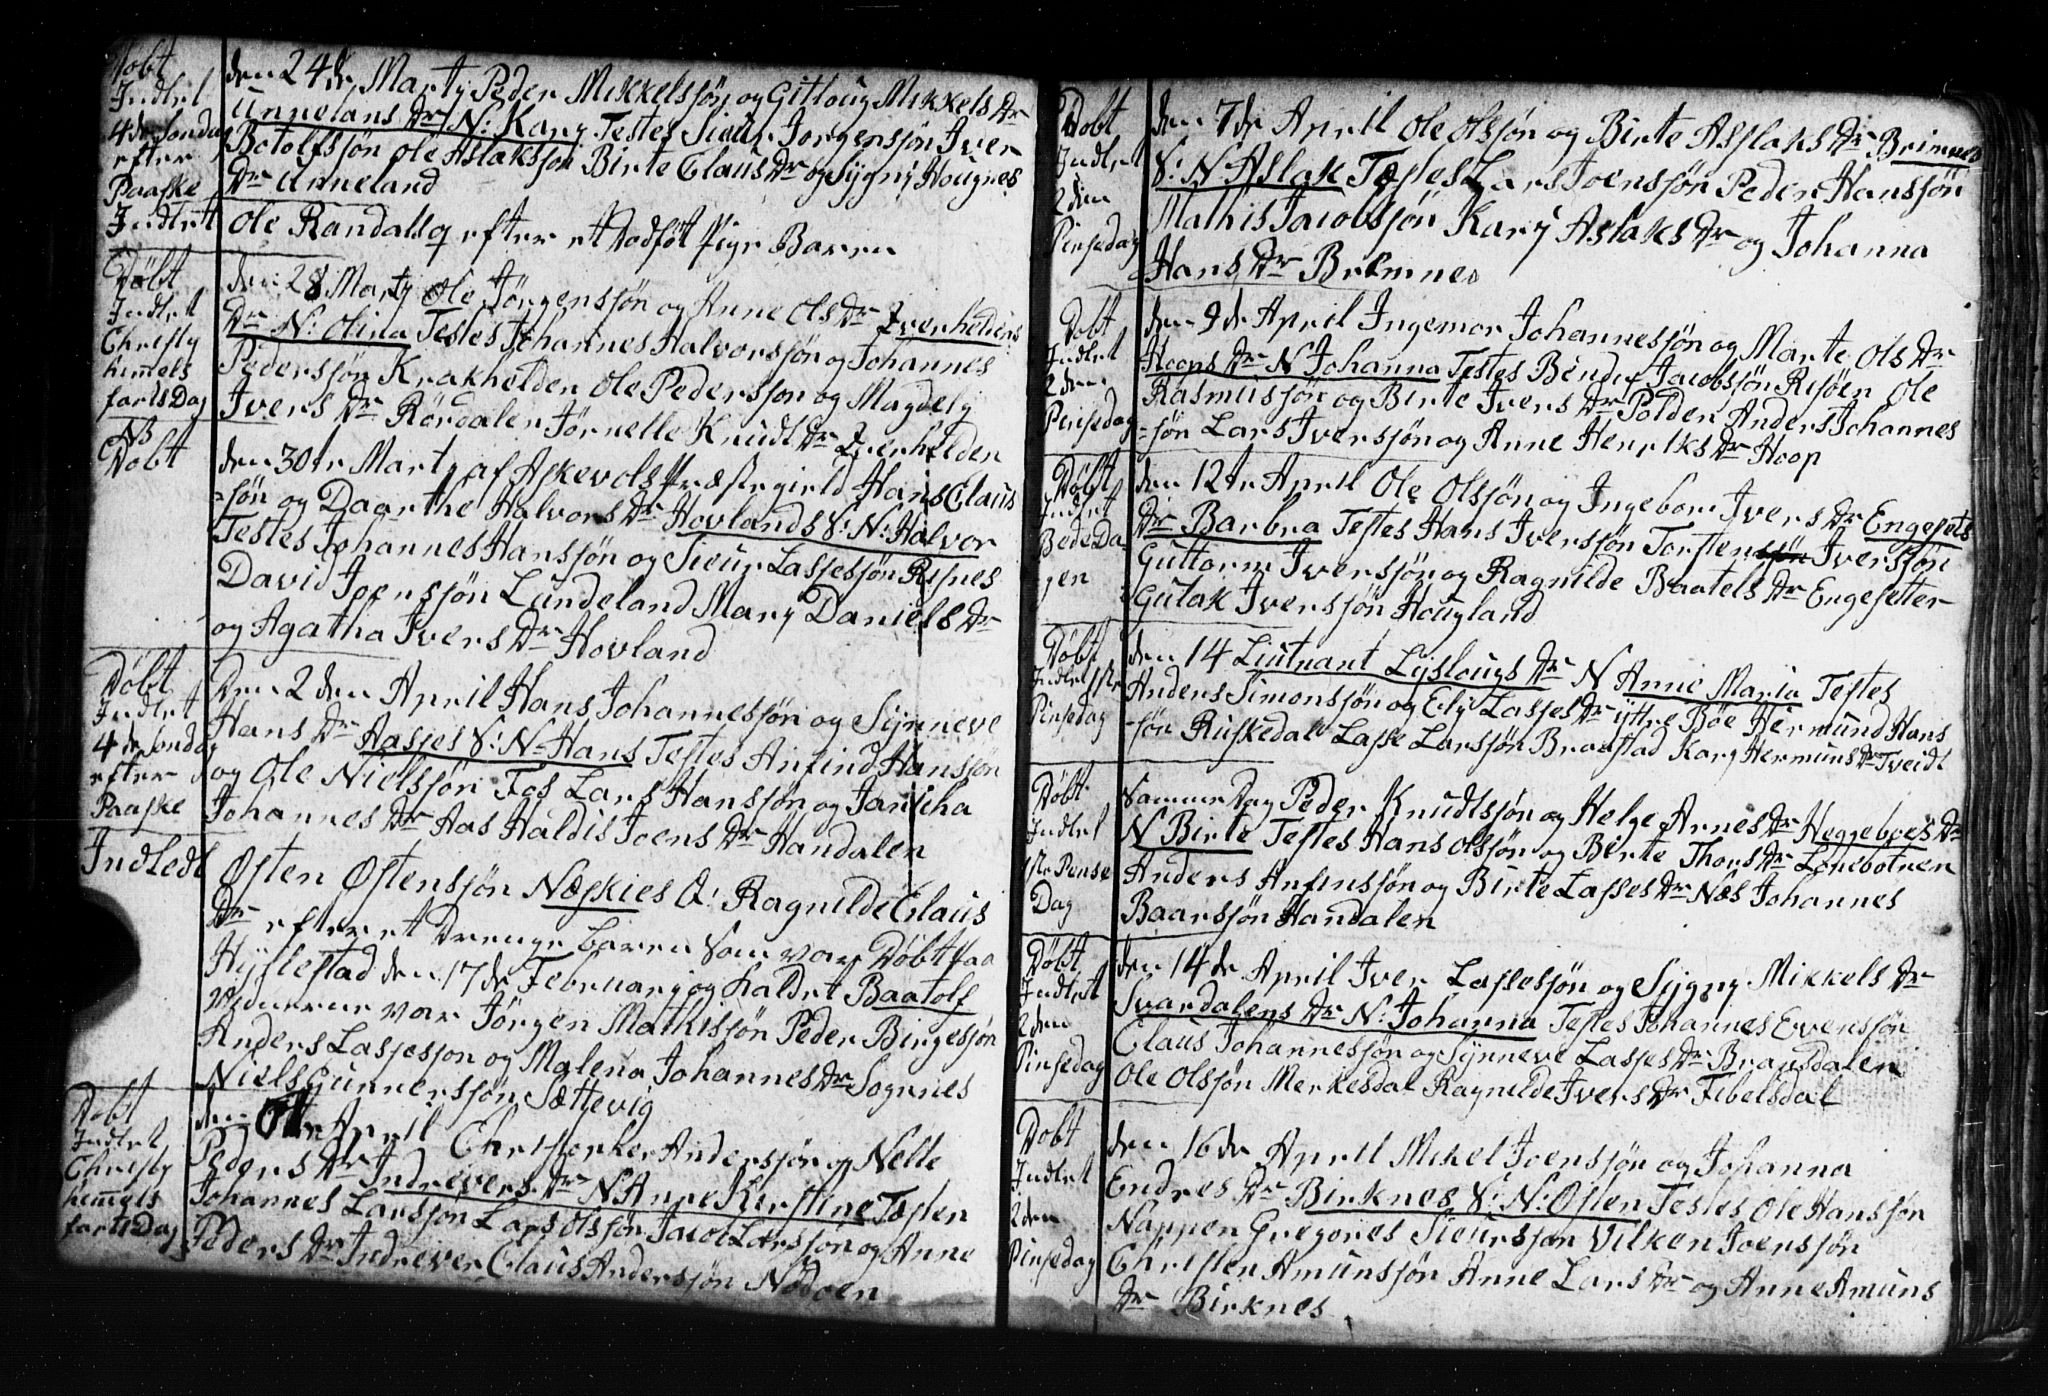 Døbt
Indlet
4de Søndag
efter
Paaske
Indlett
den 24de Marty Peder Mikkelssøn og Gitloug Mikkels Dr
Unnelans Dr N: Kary Testes Siour Jørgenssøn Iver
Botolfssøn Ole Aslakssøn Birte Claus Dr og Sygny Hougnes
Dr Unneland
Ole Randals q efter et Dødføt Pige Baren
Døbt
Indlet
Christy
himels
farts Dag
den 28 Marty Ole Jørgenssøn og Anne Ols Dr Iverheldens
Dr N: Olina Testes Johannes Halvorssøn og Johannes
Pederssøn Krakhelden Ole Pederssøn og Magdely
Ivers Dr Rørdalen Jørnelle Knudt Dr Iverhelden
NB
Døbt
den 30te Marty af Askevols Præstegield Hans Claus
=søn og Daarthe Halvors Dr Hovlands S: N: Halvor
Testes Johannes Hanssøn og Sieur Lassessøn Risnes
David Joenssøn Lundeland Mary Daniels Dr
og Agatha Ivers Dr Hovland
Døbt
Indlet
4de Søndag
efter
Paaske
Den 2den April Hans Johannessøn og Synneve
Hans Dr Aasses S: N: Hans Testes Anfind Hanssøn
og Ole Nielssøn Fos Lars Hanssøn og Janicha
Johannes Dr Aas Haldis Joens Dr Handalen
Indledt
Østen Østenssøn Næskies Q: Ragnilde Claus
Dr efter et Drenge baren som var Døbt paa
Hyllestad den 17de February og kaldet Baatolf
Viduerne var Jørgen Mathissøn Peder Birgessøn
Anders Lassessøn og Malena Johannes Dr Sognes
Niels Gunnerssøn Sættevig
Døbt
Indlet
Christy
himels
farts Dag
den 6te April Christopher Anderssøn og Nelle
Peders Dr Indrevers Dr N Anne Kirstine Testen
Johannes Larssøn Lars Olssøn Jacob Larssøn og Anne
Peders Dr Indrever Claus Anderssøn Nødøen
Døbt
Indlet
2den
Pinsedag
den 7de April Ole Olssøn og Birte Asslaks Dr Brimnes
S: N: Aslak Testes Lars Joenssøn Peder Hanssøn
Mathis Jacobssøn Kary Aslaks Dr og Johanna
Hans Dr Bremnes
Døbt
Indlet
2den
Pinsedag
den 9de April Ingemor Johannessøn og Marte Ols Dr
Hoops Dr N Johanna Testes Bendix Jacobssøn Risøen Ole
Rasmussøn og Birte Ivers Dr Polden Anders Johannes
=søn Lars Iverssøn og Anne Henriks Dr Hoop
Døbt
Indlet
Bede Da
gen
den 12te April Ole Olssøn og Ingebor Ivers Dr Engesets
Dr Barbra Testes Hans Iverssøn Torsten Iverssøn
Guttorm Iverssøn og Ragnilde Baatels Dr Engesetter
Gulak Iverssøn Hougland
Døbt
Indlet 1ste
Pinsedag
den 14 Liutnant Lyslougs Dr N Anne Maria Testes
Anders Simonssøn og Ely Lasses Dr yttre Bøe Hermund Hans
-søn Ruskedal Lasse Larssøn Braastad Kary Hermuns Dr Tveidt
Døbt
Indlet
1ste Pense
Dag
Samme Dag Peder Knudtssøn og Helge Arnes Dr Heggebøes Dr
N Birte Testes Hans Olssøn og Birte Thors Dr Lonebotnen
Anders Anfinssøn og Birte Lasses Dr Næs Johannes
Baarssøn Handalen
Døbt
Indlet
2den
Pinsedag
den 14de April Iver Lassessøn og Sygny Mikkels Dr
Svardalens Dr N: Johanna Testes Johannes Evenssøn
Claus Johannessøn og Synneve Lasses Dr Bransdalen
Ole Olssøn Merkesdal Ragnilde Ivers Dr Fibelsdal
Døbt
Indlet
2den
Pinsedag
den 16de April Mikel Joenssøn og Johanna
Endres Dr Birknes S: N: Østen Testes Ole Hanssøn
Nappen Gregorius Sieurssøn Vilken Joenssøn
Christen Amunssøn Anne Lars Dr og Anne Amuns
Dr Birknes